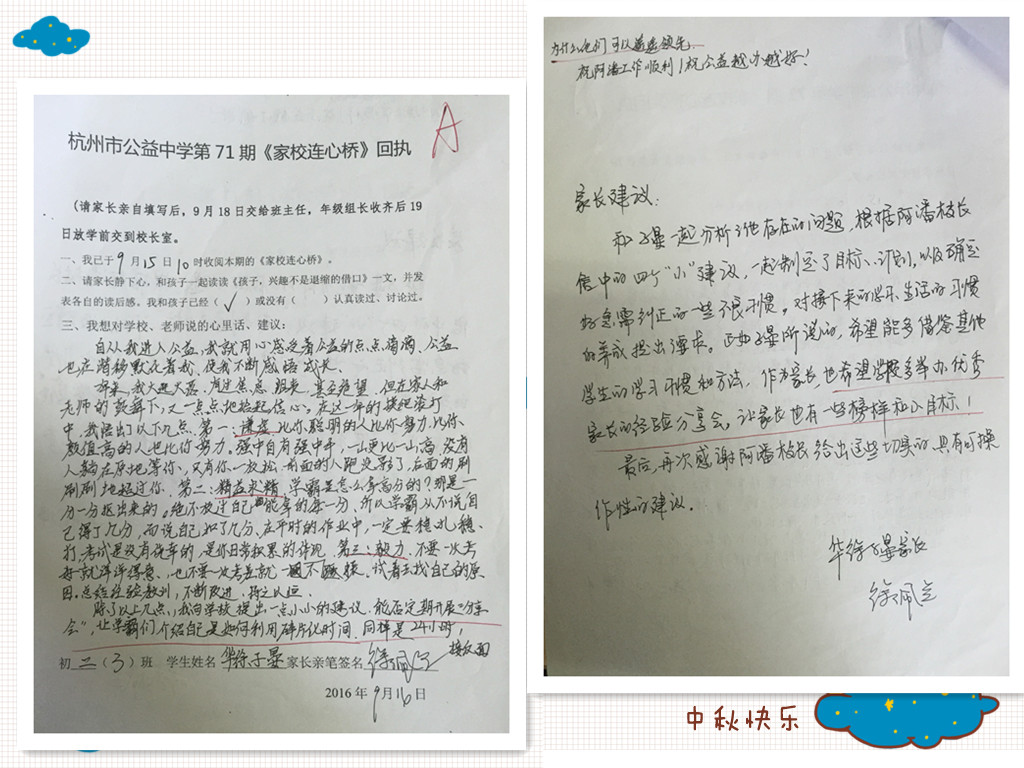 杭州市公益中学第 71 期《家校连心桥》回执
A
(请家长亲自填写后，9 月 18 日交给班主任，年级组长收齐后 19
日放学前交到校长室。
一、我已于 9 月 15 日 10 时收阅本期的《家校连心桥》。
二、请家长静下心，和孩子一起读读《孩子，兴趣不是退缩的借口》一文，并发
表各自的读后感。我和孩子已经（ √ ）或没有（ ）认真读过、讨论过。
三、我想对学校、老师说的心里话、建议：
自从我进入公益，我就用心感受着公益的点点滴滴、公益
也在潜移默化着我，使我不断感悟成长。
我大进大落，有过焦急、甚至绝望，但在家人和
老师的鼓舞下，又一点点地拾起信心。在这一年的摸爬滚打
中，我悟出了以下几点。第一：谦虚，比你聪明的人比你努力，比你
数值高的人也比你努力。强中自有强中手，一山更比一山高，没有
人躺在原地等你，只有你一放松，前面的人跑没影了，后面的刷
刷刷地超过你。第二：精益求精，学霸是怎么考高分的？那是一
分一分抠出来的。绝不放过自己能拿的每一分，所以学霸从不说自
己得了几分，而说自己扣了几分，在平时的作业中，一定要稳扎稳
打，考试是没有侥幸的，是你日常积累的体现。第三：毅力，不要一次考
好就洋洋得意，也不要一次考差就一蹶不振，试着去找自己的原
因。总结经验教训，不断改进，持之以恒。
除了以上几点，我向学校提出一点小小的建议，能否定期开展“分享
会”，让学霸们介绍自己是如何利用碎片化时间，同样是24小时，
接反面
初 二（ 3 ）班 学生姓名 华徐子晏 家长亲笔签名 徐佩
2016 年 9 月 16 日
为什么他们可以遥遥领先。
祝阿潘工作顺利！祝公益越办越好！
家长建议：
和子晏一起分析了他存在的问题，根据阿潘校长
信中的四个“小”建议，一起制定了目标、计划，以及确定
好急需纠正的一些不良习惯。对接下来的学习、生活的习惯
的养成提出要求。正如子晏所说的，希望能多借鉴其他
学生的学习习惯和方法，作为家长，也希望学校多举办优秀
家长的经验分享会。让家长也有一些榜样和小目标！
最后，再次感谢阿潘校长给出这些切实的具有可操
作性的建议。
华徐子晏家长
徐佩
中秋快乐